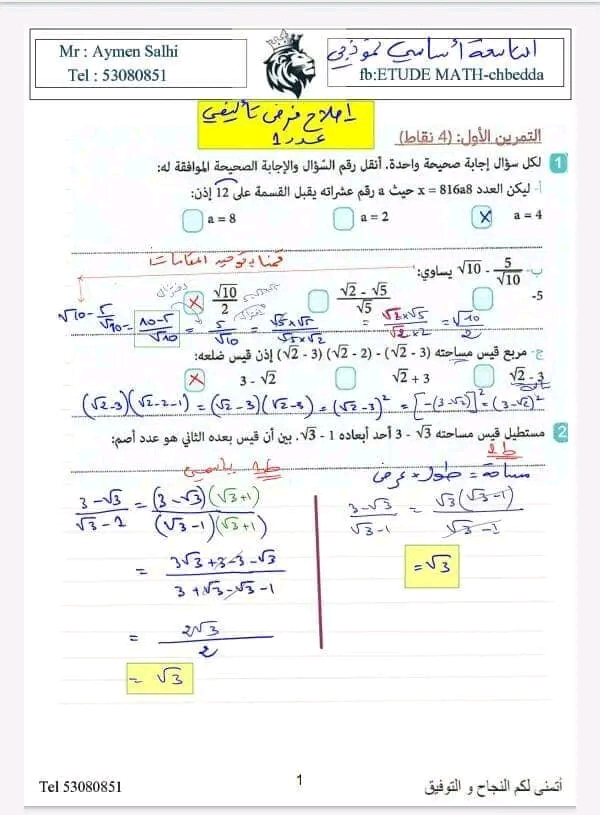 Mr : Aymen Salhi
Tel : 53080851
التاسعة أساسي نموذجي
fb:ETUDE MATH-chbedda
إصلاح فرض تأليفي
عدد 1
التمرين الأول: (4 نقاط)
1 لكل سؤال إجابة صحيحة واحدة. أنقل رقم السّؤال والإجابة الصحيحة الموافقة له:
أ- ليكن العدد x = 816a8 حيث a رقم عشراته يقبل القسمة على 12 إذن:
a = 4 X a = 2 a = 8
قمنا بتوحيد المقامات
ب- √10 - 5/√10 يساوي:
-5 (√2 - √5)/√5 √10/2 X
√10 - 5/√10 = (10-5)/√10 = 5/√10 = (√5×√5)/(√5×√2) = (√2×√5)/(√2×2) = √10/2
ج- مربع قيس مساحته (√2 - 3) - (√2 - 2)(√2 - 3) إذن قيس ضلعه:
√2 - 3 √2 + 3 3 - √2 X
(√2-3)(√2-2-1) = (√2-3)(√2-3) = (√2-3)² = [-(3-√2)]² = (3-√2)²
2 مستطيل قيس مساحته 3 - √3 أحد أبعاده √3 - 1. بين أن قيس بعده الثاني هو عدد أصم:
ط2
مساحة = طول × عرض
(3-√3)/(√3-1) = √3(√3-1)/(√3-1)
= √3
ط1 ياسمين
(3-√3)/(√3-1) = (3-√3)(√3+1)/(√3-1)(√3+1)
= (3√3+3-3-√3)/(3+√3-√3-1)
= 2√3/2
= √3
1
Tel 53080851
أتمنى لكم النجاح و التوفيق